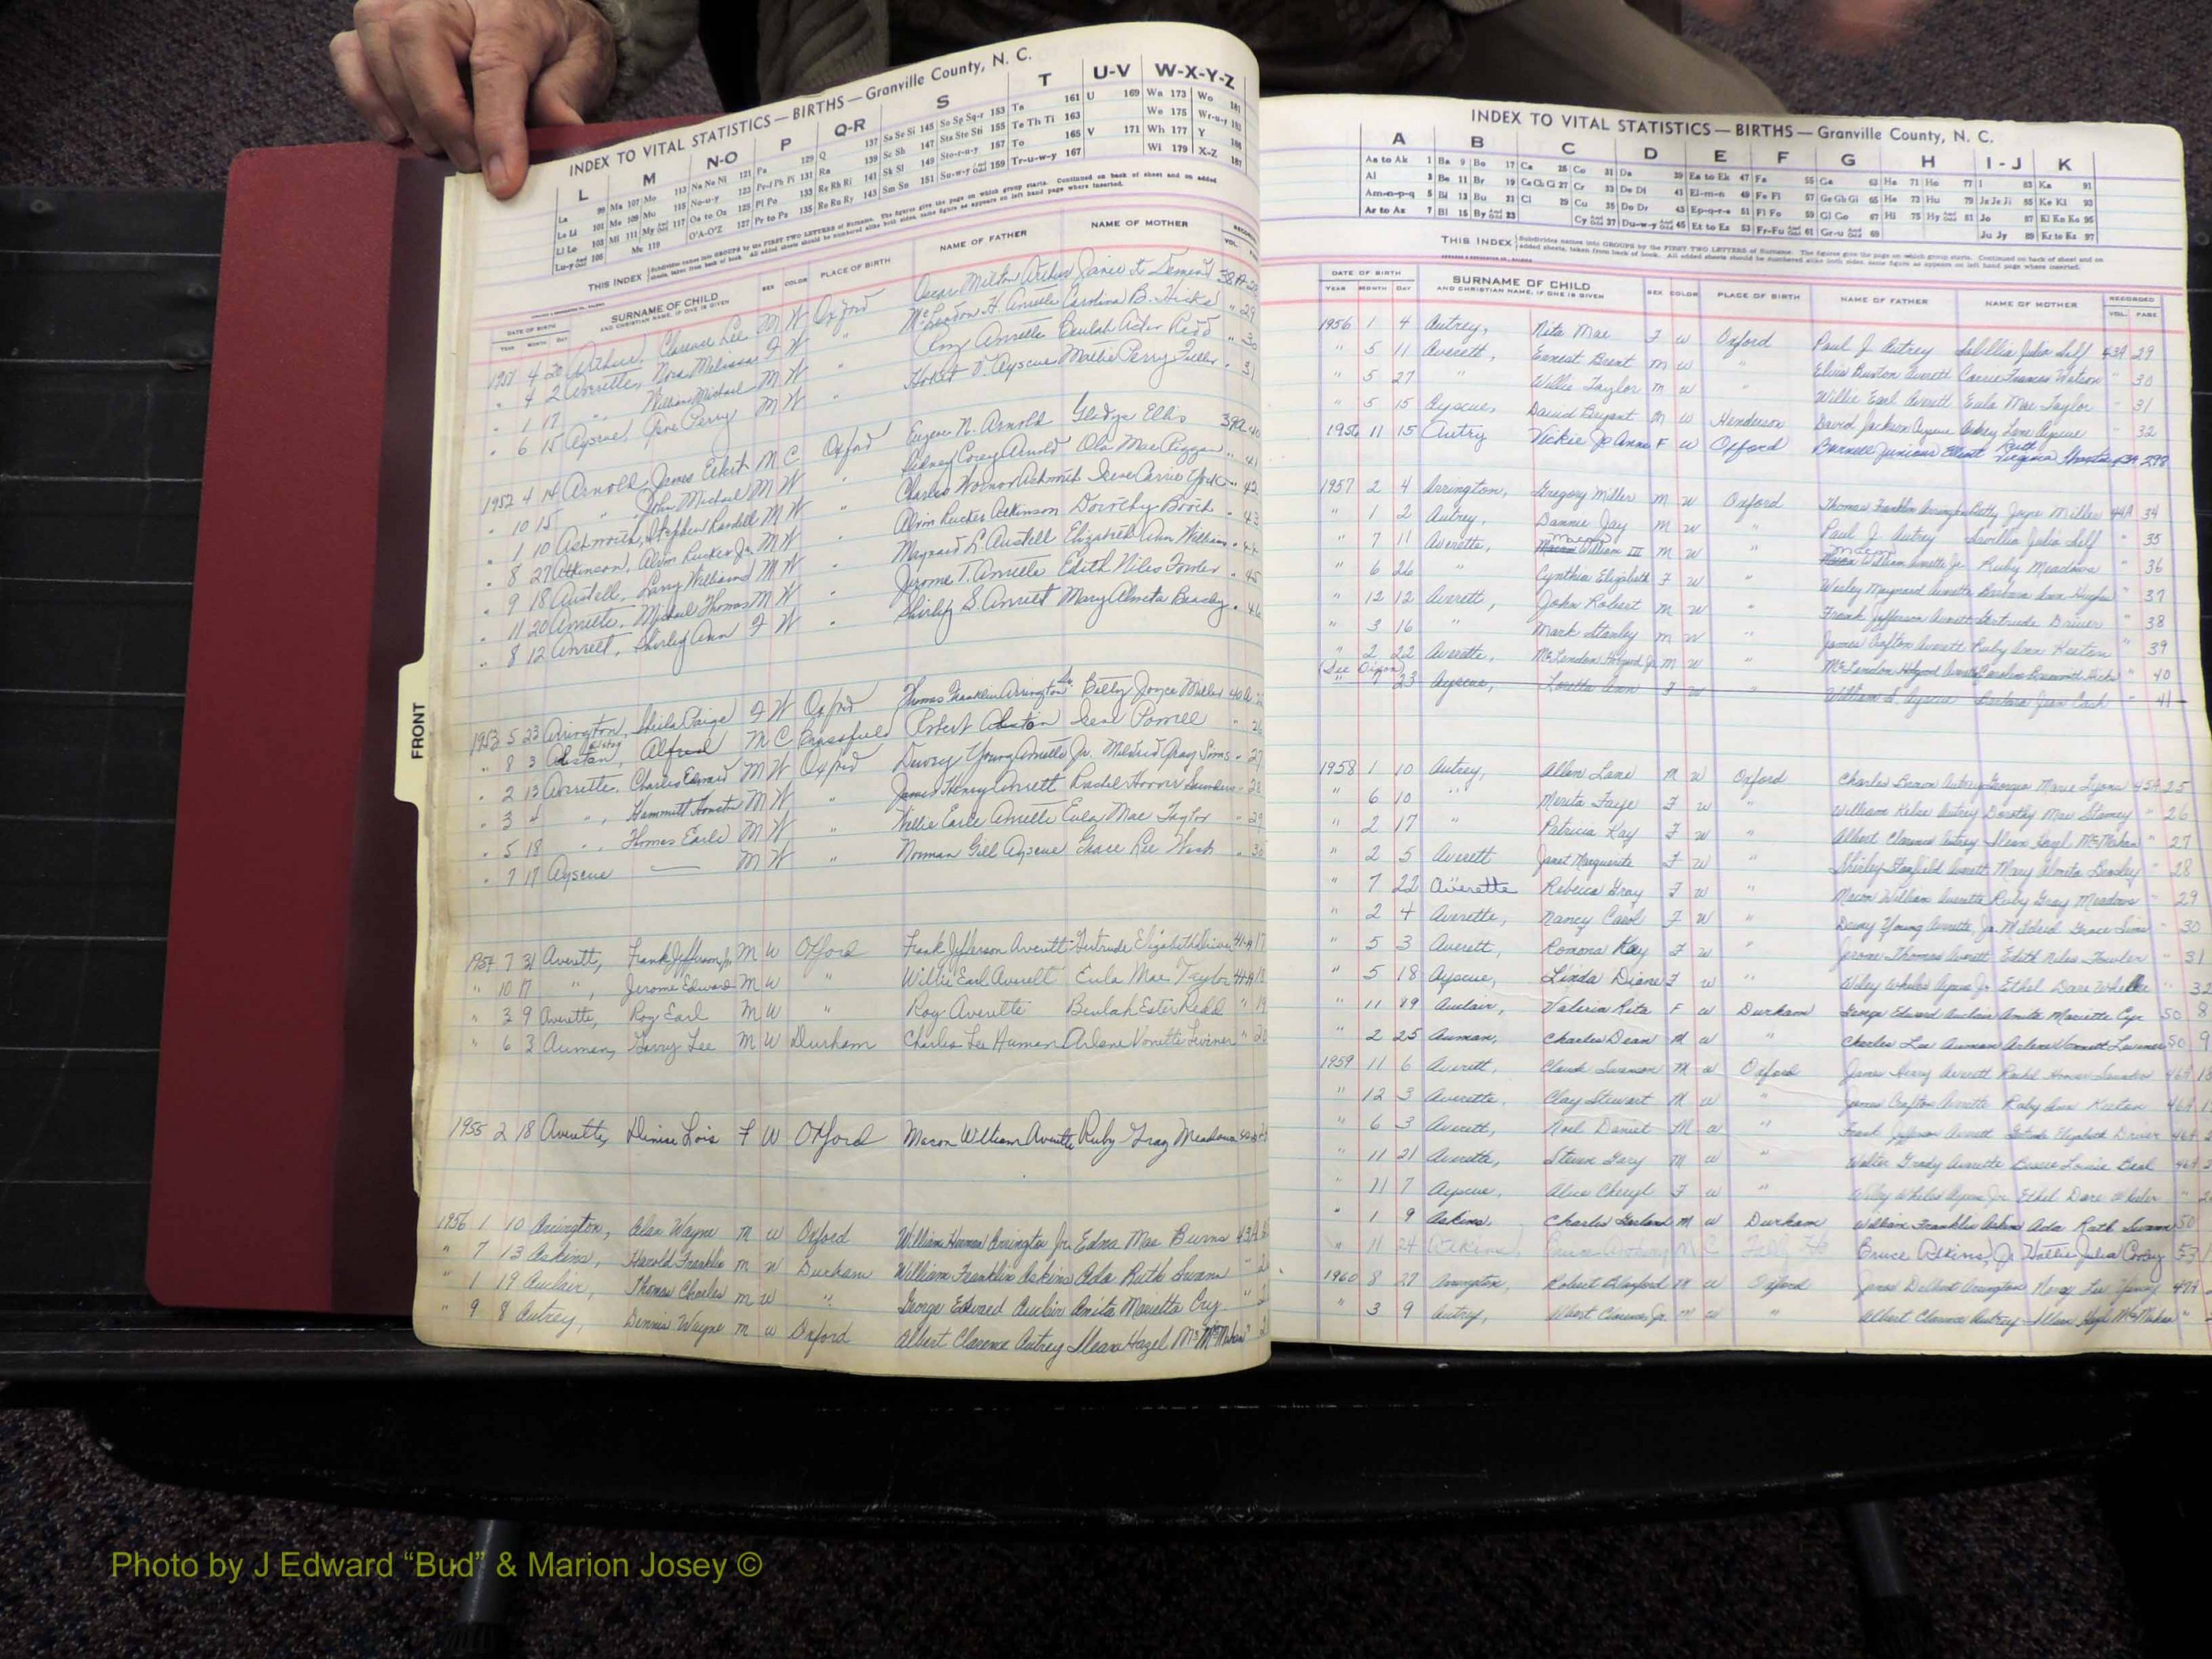 INDEX TO VITAL STATISTICS — BIRTHS — Granville County, N. C.
L M N-O P Q-R S T U-V W-X-Y-Z
La 99 Ma 107 Mo 113 Na Ne Ni 121 Pa 129 Q 137 Sa Se Si 145 So Sp Sq-r 153 Ta 161 U 169 Wa 173 Wo 181
Le Li 101 Me 109 Mu 115 No-u-y 123 Pe-f Ph Pi 131 Ra 139 Sc Sh 147 Sta Ste Sti 155 Te Th Ti 163 We 175 Wr-u-y 183
Ll Lo 103 Mi 111 My And Odd 117 Oa to Os 125 Pl Po 133 Re Rh Ri 141 Sk Sl 149 Sto-r-u-y 157 To 165 V 171 Wh 177 Y 185
Lu-y And Odd 105 Mc 119 O'A-O'Z 127 Pr to Ps 135 Ro Ru Ry 143 Sm Sn 151 Su-w-y And Odd 159 Tr-u-w-y 167 Wi 179 X-Z 187
THIS INDEX Subdivides names into GROUPS by the FIRST TWO LETTERS of Surname. The figures give the page on which group starts. Continued on back of sheet and on added
sheets, taken from back of book. All added sheets should be numbered alike both sides, same figure as appears on left hand page where inserted.
DATE OF BIRTH SURNAME OF CHILD SEX COLOR PLACE OF BIRTH NAME OF FATHER NAME OF MOTHER
YEAR MONTH DAY AND CHRISTIAN NAME, IF ONE IS GIVEN VOL.
1951 4 20 Clarence Lee M W Oxford Oscar Milton 38A
" 4 2 Averette, Nora Melissa F W " McLendon H. Carolina B. Hicks " 29
" 1 17 " William Michael M W " Roy Averette Beulah Redd " 30
" 6 15 Ayscue, Gene Perry M W " Ayscue Mattie Perry Fuller " 31
1952 4 14 Arnold, James M C Oxford Eugene N. Arnold Gladys Ellis 39A 40
" 10 15 " John Michael M W " Sidney Corey Arnold Ola Mae " 41
" 1 10 Ashworth, Stephen Randell M W " Charles Irene Carrie " 42
" 8 27 Atkinson, Alvin Rucker Jr. M W " Alvin Rucker Atkinson Dorothy Booth " 43
" 9 18 Austell, Larry Williams M W " Maynard L Austell Elizabeth Ann Williams " 44
" 11 20 Averette, Michael Thomas M W " Jerome T. Averette Edith Niles Fowler " 45
" 8 12 Averett, Shirley Ann F W " Shirley S. Averett Mary Almeta Beasley " 46
1953 5 23 Arrington, Sheila Paige F W Oxford Thomas Franklin Arrington Jr. Betty Joyce Miller 40A
" 8 3 Alston, Alfred M C Brassfield Robert Alston Powell " 26
" 2 13 Averette, Charles Edward M W Oxford Dewey Young Averette Jr. Mildred Gray Sims " 27
" 3 4 " , Hammitt M W " James Henry Averett Rachel Hoover Saunders " 28
" 5 18 " , Thomas Earle M W " Willie Earle Averette Eula Mae Taylor " 29
" 7 17 Ayscue — M W " Norman Gill Ayscue Grace Lee " 30
1954 7 31 Averett, Frank Jefferson, Jr. M W Oxford Frank Jefferson Averett Gertrude Elizabeth Driver 41-A 17
" 10 17 " , Jerome Edward M W " Willie Earl Averett Eula Mae Taylor 41-A 18
" 3 9 Averette, Roy Earl M W " Roy Averette Beulah Ester Redd " 19
" 6 3 Auman, Larry Lee M W Durham Charles Lee Auman Arlene Vonette " 20
1955 2 18 Averette, Denise Lois F W Oxford Macon William Averette Ruby Gray Meadows
1956 1 10 Arrington, Alan Wayne M W Oxford William Herman Arrington Jr. Edna Mae Burns 43A
" 7 13 Askins, Harold Franklin M W Durham William Franklin Askins Ada Ruth Swann "
" 1 19 Auclair, Thomas Charles M W " George Edward Auclair Anita Marietta Cyr "
" 9 8 Autrey, Dennis Wayne M W Oxford Albert Clarence Autrey Ileane Hazel McMahan "
FRONT
INDEX TO VITAL STATISTICS — BIRTHS — Granville County, N. C.
A B C D E F G H I-J K
Aa to Ak 1 Ba 9 Bo 17 Ca 25 Co 31 Da 39 Ea to Ek 47 Fa 55 Ga 63 Ha 71 Ho 77 I 83 Ka 91
Al 3 Be 11 Br 19 Ce Ch Ci 27 Cr 33 De Di 41 El-m-n 49 Fe Fi 57 Ge Gh Gi 65 He 73 Hu 79 Ja Je Ji 85 Ke Ki 93
Am-n-p-q 5 Bi 13 Bu 21 Cl 29 Cu 35 Do Dr 43 Ep-q-r-s 51 Fl Fo 59 Gl Go 67 Hi 75 Hy And Odd 81 Jo 87 Kl Kn Ko 95
Ar to Az 7 Bl 15 By And Odd 23 Cy And Odd 37 Du-w-y And Odd 45 Et to Ez 53 Fr-Fu And Odd 61 Gr-u And Odd 69 Ju Jy 89 Kr to Kz 97
THIS INDEX Subdivides names into GROUPS by the FIRST TWO LETTERS of Surname. The figures give the page on which group starts. Continued on back of sheet and on
added sheets, taken from back of book. All added sheets should be numbered alike both sides, same figure as appears on left hand page where inserted.
DATE OF BIRTH SURNAME OF CHILD SEX COLOR PLACE OF BIRTH NAME OF FATHER NAME OF MOTHER RECORDED
YEAR MONTH DAY AND CHRISTIAN NAME, IF ONE IS GIVEN VOL. PAGE
1956 1 4 Autrey, Nita Mae F W Oxford Paul J. Autrey Julia Self 43A 29
" 5 11 Averett, Ernest Brent M W " Elvis Buxton Averett Carrie Frances Watson " 30
" 5 27 " Willie Taylor M W " Willie Earl Averett Eula Mae Taylor " 31
" 5 15 Ayscue, David Bryant M W Henderson David Jackson Ayscue Lane Ayscue " 32
1956 11 15 Autry Vickie Jo Anne F W Oxford Burnell Junious Elliott Ruth Virginia 298
1957 2 4 Arrington, Gregory Miller M W Oxford Thomas Franklin Arrington Betty Joyce Miller 44A 34
" 1 2 Autrey, Dannie Jay M W " Paul J. Autrey Savillia Julia Self " 35
" 7 11 Averette, Macon William III M W " Macon William Averette Jr. Ruby Meadows " 36
" 6 26 " Cynthia Elizabeth F W " Wesley Maynard Averette Barbara Ann Hughes " 37
" 12 12 Averett, John Robert M W " Frank Jefferson Averett Gertrude Driver " 38
" 3 16 " Mark Stanley M W " James Crafton Averett Ruby Ann Keeton " 39
" 2 22 Averette, McLendon Holgood Jr. M W " McLendon Holgood Averette Caroline Hicks " 40
(See Dixon)
" 7 23 Ayscue, Loretta Ann F W William S. Ayscue Barbara Jean Cash " 41
1958 1 10 Autrey, Allen Lane M W Oxford Charles Autrey Georgia Marie Lyons 45A 25
" 6 10 " Merita Faye F W " William Kelse Autrey Dorothy Mae Stamey " 26
" 2 17 " Patricia Kay F W " Albert Clarence Autrey Ileane Hazel McMahan " 27
" 2 5 Averett Janet Marguerite F W " Shirley Stanfield Averett Mary Almita Beasley " 28
" 7 22 Averette Rebecca Gray F W " Macon William Averette Ruby Gray Meadows " 29
" 2 4 Averette, Nancy Carol F W " Dewey Young Averette, Jr. Mildred Grace Sims " 30
" 5 3 Averett, Romona Kay F W " Jerome Thomas Averett Edith Niles Fowler " 31
" 5 18 Ayscue, Linda Diane F W " Wiley Wheles Ayscue Jr. Ethel Dare Wheeler " 32
" 11 19 Auclair, Valerie Rita F W Durham George Edward Auclair Anita Mariette Cyr 50 8
" 2 25 Auman, Charles Dean M W " Charles Lee Auman Arlene 50 9
1959 11 6 Averett, Claude Swanson M W Oxford James Henry Averett Rachel Hoover Saunders 46A
" 12 3 Averette, Clay Stewart M W " James Crafton Averette Ruby Ann Keeton 46A
" 6 3 Averett, Noel Daniel M W " Frank Jefferson Averett Gertrude Elizabeth Driver 46A
" 11 21 Averette, Steven Gary M W " Walter Grady Averette Bessie Louise Beal 46A
" 11 7 Ayscue, Alice Cheryl F W " Wiley Wheles Ayscue Jr. Ethel Dare Wheeler "
" 1 9 Askins, Charles Garland M W Durham William Franklin Askins Ada Ruth Swann 50
" 11 24 Atkins, M C Bruce Atkins, Jr. Hallie Julia 53
1960 8 27 Arrington, Robert M W Oxford James Delbert Arrington Nancy Lee 47A
" 3 9 Autrey, Albert Clarence, Jr. M W " Albert Clarence Autrey Ileane Hazel McMahan "
Photo by J Edward “Bud” & Marion Josey ©